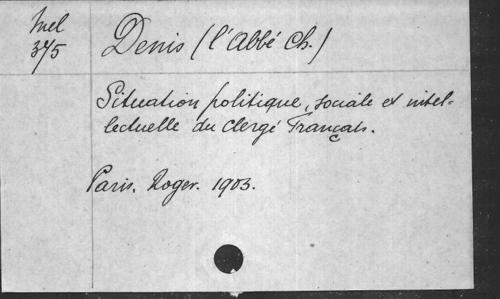 Mel
375
Denis (l'Abbé Ch.)
Situation politique, sociale et intel-
lectuelle du Clergé Français.
Paris. Roger. 1903.